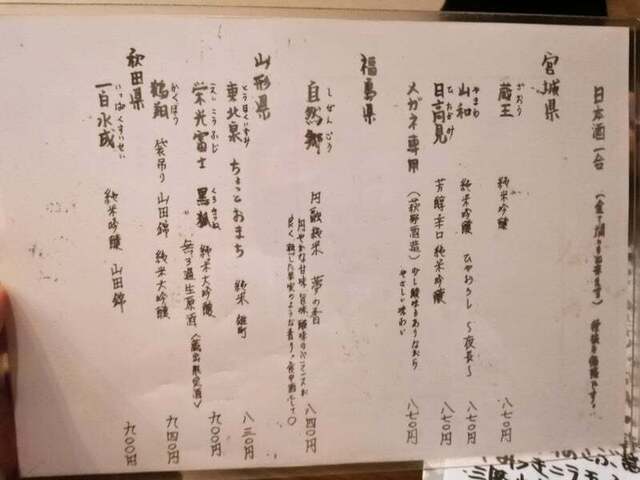 日本酒一合
宮城県
ざおう
蔵王 純米吟醸 八七〇円
やまわ
山和 純米吟醸 ひやおろし 〜夜長〜 八七〇円
ひたかみ
日高見 芳醇辛口純米吟醸 八七〇円
メガネ専用 (萩野酒造) 少し酸味もありながら 八七〇円
やさしい味わい
福島県
しぜんごう
自然郷 円融純米 夢の香 八四〇円
円やかな甘味、旨味、酸味のバランスが
良く熟した果実のような香り。食中酒として〇
山形県
とうほくいずみ
東北泉 ちょっとおまち 純米 雄町 八三〇円
えいこうふじ くろきつね
栄光冨士 黒狐 純米大吟醸 九〇〇円
無ろ過生原酒
〈蔵出限定酒〉
かくほう
鶴翔 袋吊り 山田錦 純米大吟醸 九四〇円
秋田県
いっぱくすいせい
一白水成 純米吟醸 山田錦 九〇〇円